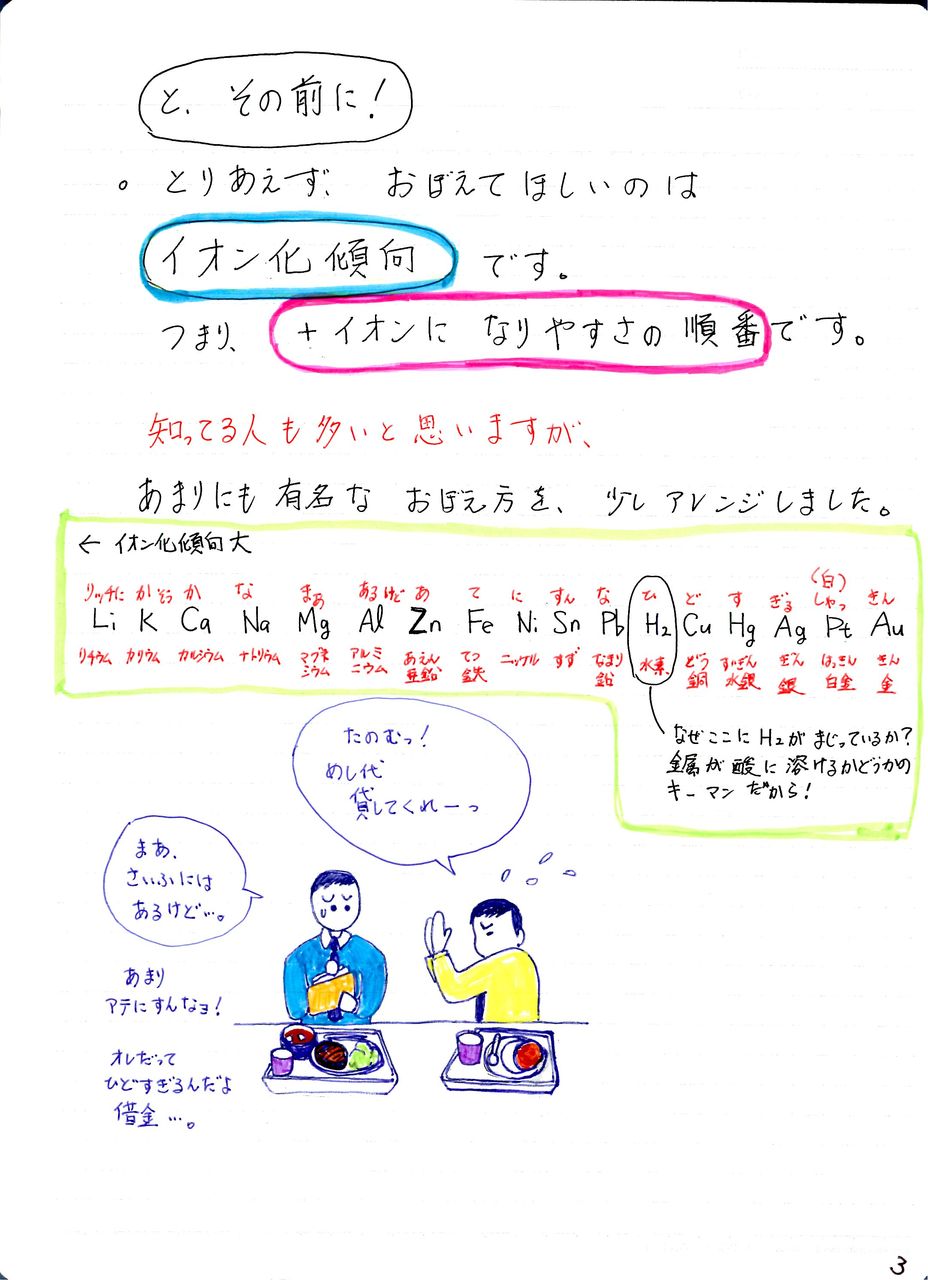 と、その前に!
。とりあえず、 おぼえてほしいのは
イオン化傾向 です。
つまり、 +イオンに なりやすさの 順番です。
知ってる人も多いと思いますが、
あまりにも有名な おぼえ方を、 少しアレンジしました。
← イオン化傾向大
リッチに かそう か な まぁ あるけど あ て に すん な ひ ど す ぎる (白)しゃっ きん
Li K Ca Na Mg Al Zn Fe Ni Sn Pb H₂ Cu Hg Ag Pt Au
リチウム カリウム カルシウム ナトリウム マグネシウム アルミニウム あえん てつ ニッケル すず なまり 水素 どう すいぎん ぎん はっきん きん
亜鉛 鉄 鉛 銅 水銀 銀 白金 金
なぜここにH₂がまじっているか?
金属が酸に溶けるかどうかの
キーマンだから!
たのむっ!
めし代
貸してくれーっ
まあ、
さいふには
あるけど…。
あまり
アテにすんなョ!
オレだって
ひどすぎるんだよ
借金…。
3